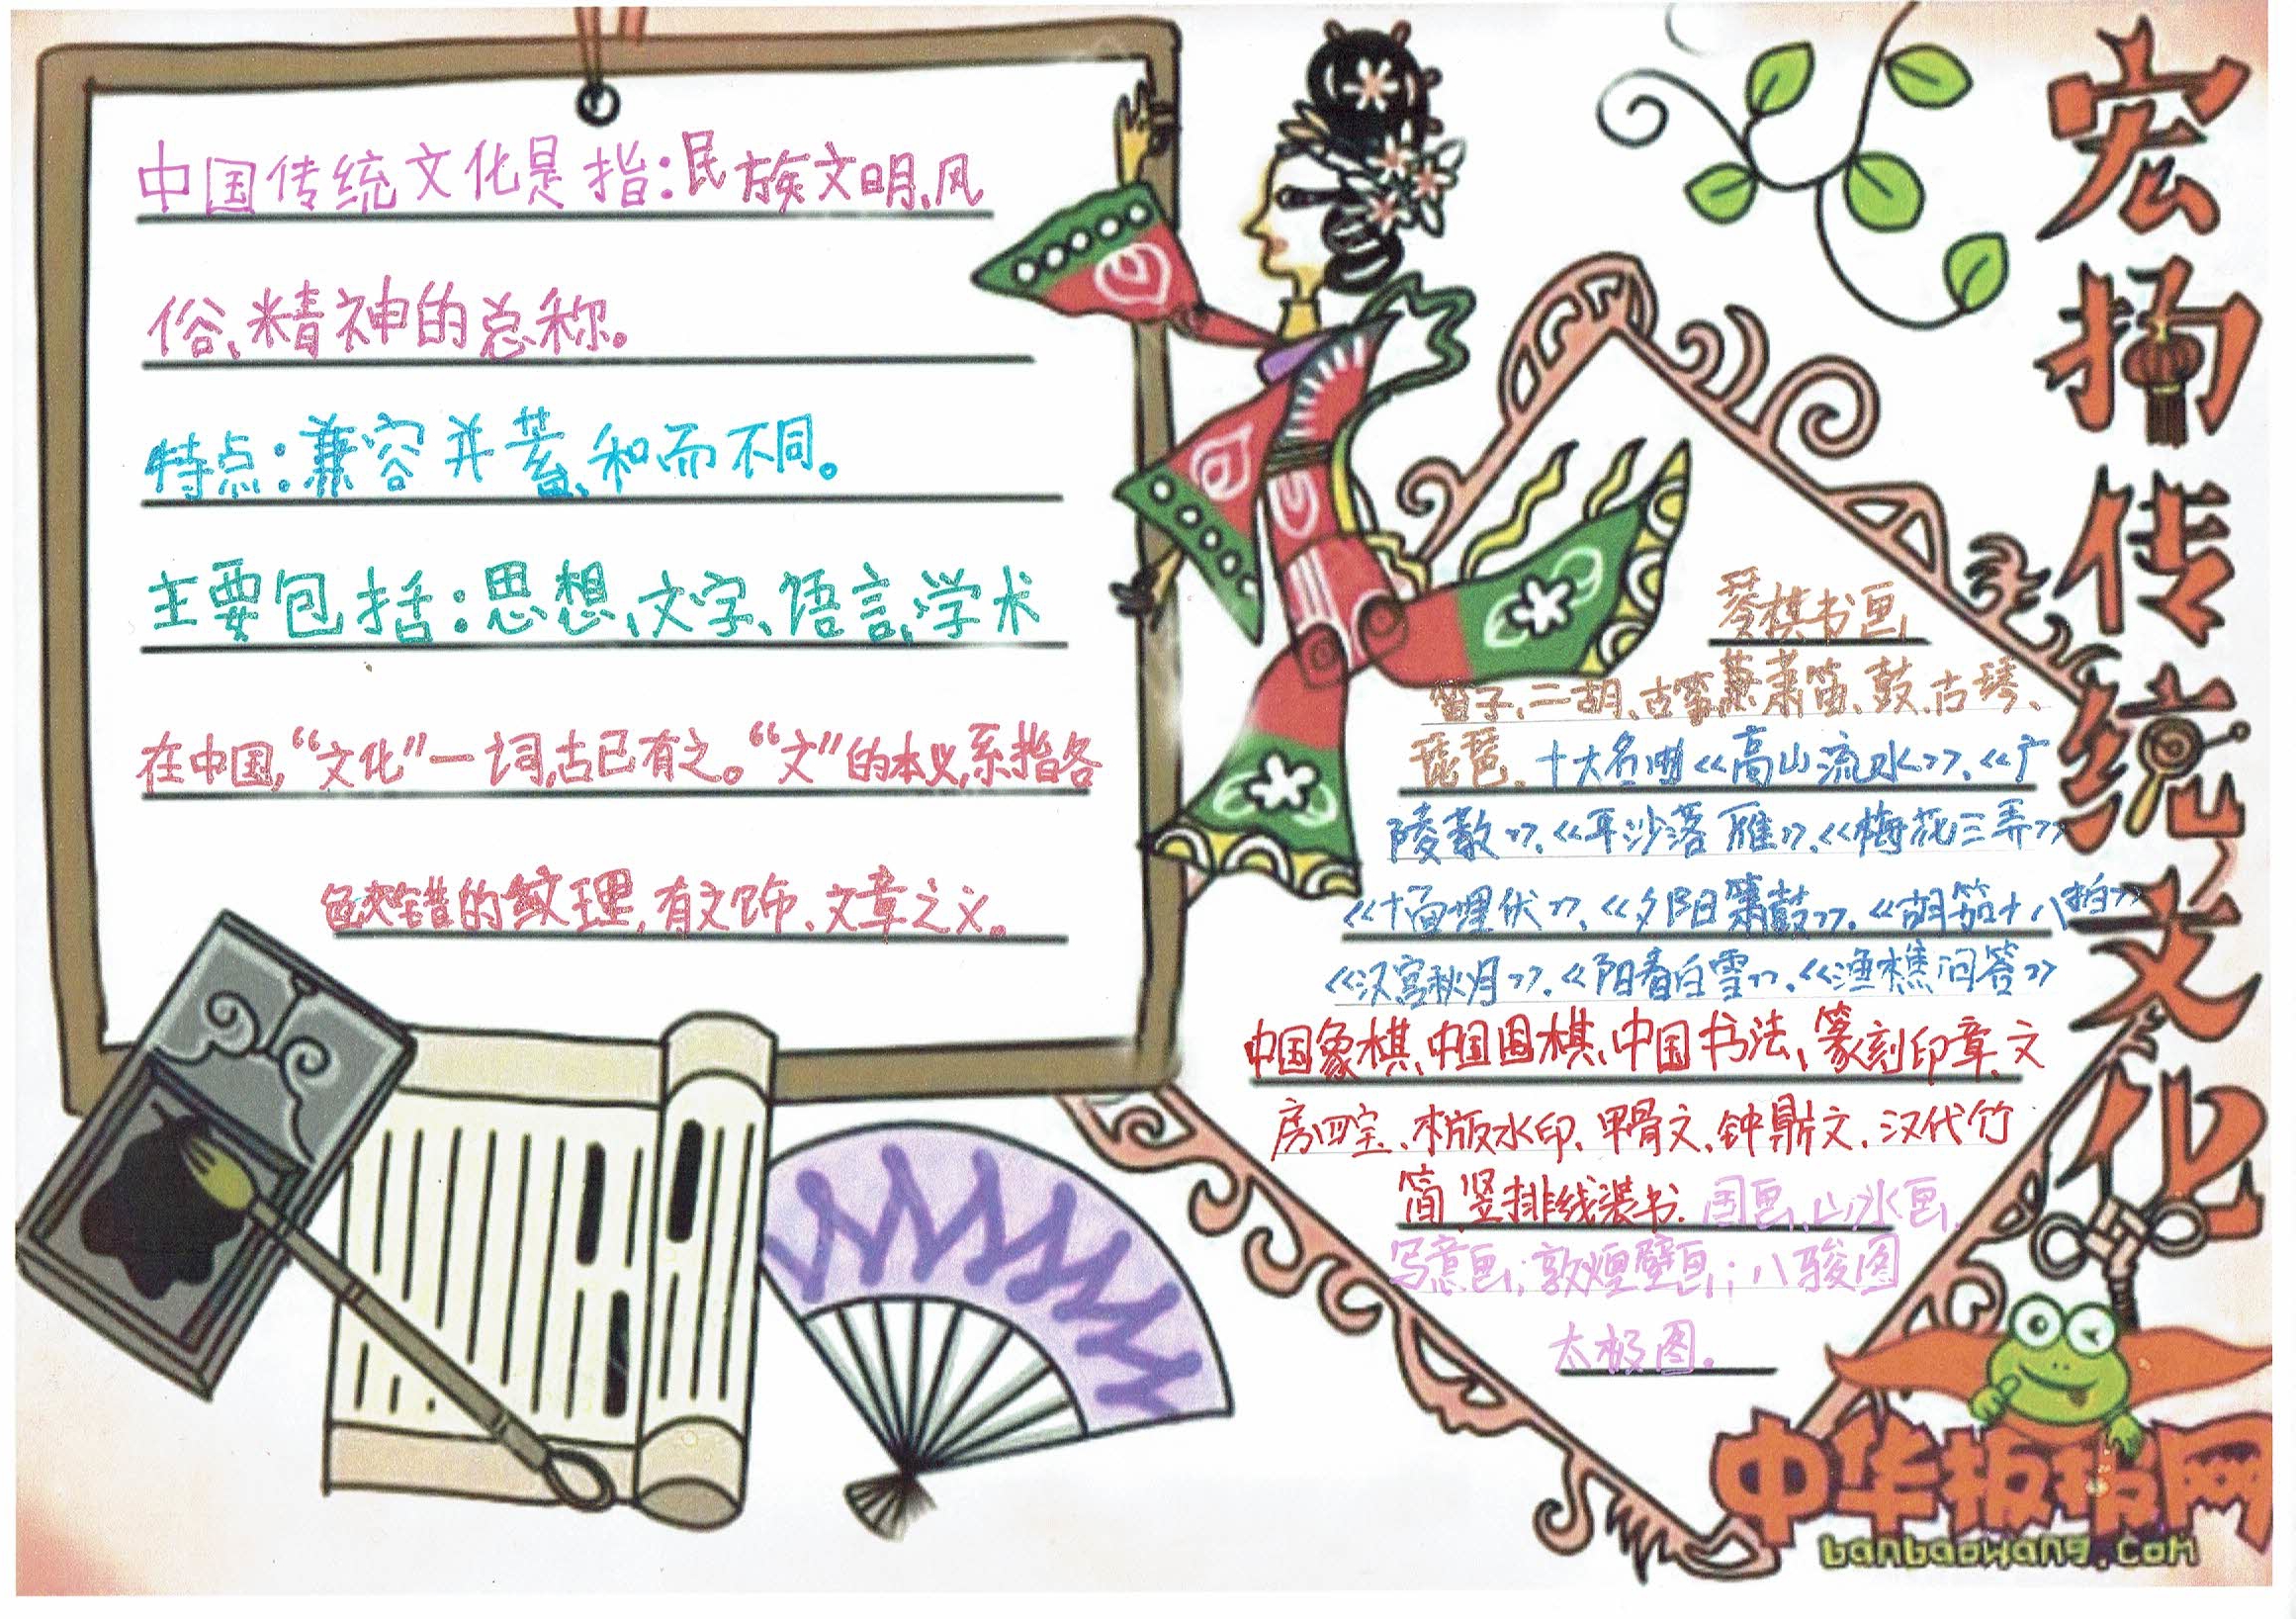 中国传统文化是指:民族文明、风
俗、精神的总称。
特点:兼容并蓄、和而不同。
主要包括:思想、文字、语言、学术
在中国,“文化”一词,古已有之。“文”的本义,系指各
色交错的纹理,有文饰、文章之义。
宏扬传统文化
琴棋书画
笛子、二胡、古筝、萧笛、鼓、古琴、
琵琶、十大名曲《高山流水》、《广
陵散》、《平沙落雁》、《梅花三弄》
《十面埋伏》、《夕阳箫鼓》、《胡笳十八拍》
《汉宫秋月》、《阳春白雪》、《渔樵问答》
中国象棋、中国围棋、中国书法、篆刻印章、文
房四宝、木版水印、甲骨文、钟鼎文、汉代竹
简、竖排线装书、国画、山水画、
写意画;敦煌壁画;八骏图
太极图。
中华板报网
banbaowang.com